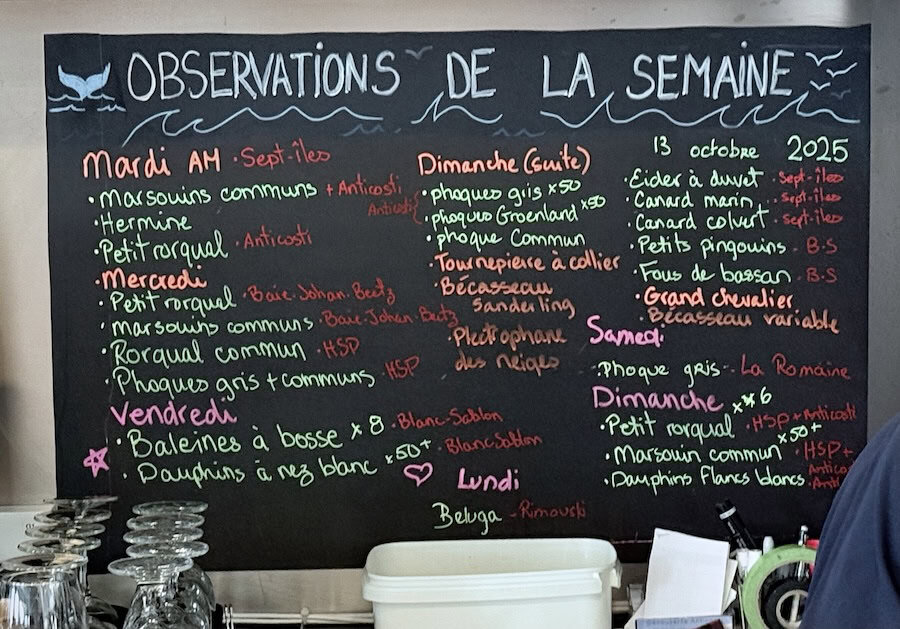 OBSERVATIONS DE LA SEMAINE
Mardi AM · Sept-îles
· Marsouins communs + Anticosti
· Hermine
· Petit rorqual · Anticosti
· Mercredi
· Petit rorqual · Baie. Johan. Beetz
· marsouins communs · Baie. Johan. Beetz
· Rorqual commun · HSP
· Phoques gris + communs · HSP
Vendredi
· Baleines à bosse x 8 · Blanc-Sablon
· Dauphins à nez blanc x50+ · Blanc Sablon
Dimanche (suite)
· phoques gris x50
Anticosti
· phoques Groenland x50
· phoque Commun
· Tournepierre à collier
· Bécasseau
Sanderling
· Plectrophane
des neiges
Lundi
Beluga - Rimouski
13 octobre 2025
· Eider à duvet · Sept-îles
· Canard marin .. Sept-îles
· Canard colvert · Sept-îles
· Petits pingouins - B-S
· Fous de bassan · B-S
· Grand chevalier
· Bécasseau variable
Samedi
· Phoque gris -- La Romaine
Dimanche
· Petit rorqual x 6 · HSP + Anticosti
· Marsouin commun x50+ · HSP +
Anticos
· Dauphins Flancs blancs · Anti